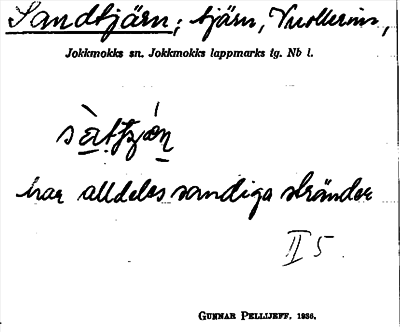 Sandtjärn; tjärn, Vuollerim,
Jokkmokks sn. Jokkmokks lappmarks tg. Nb l.
har alldeles sandiga stränder
II 5.
GUNNAR PELLIJEFF, 1936.